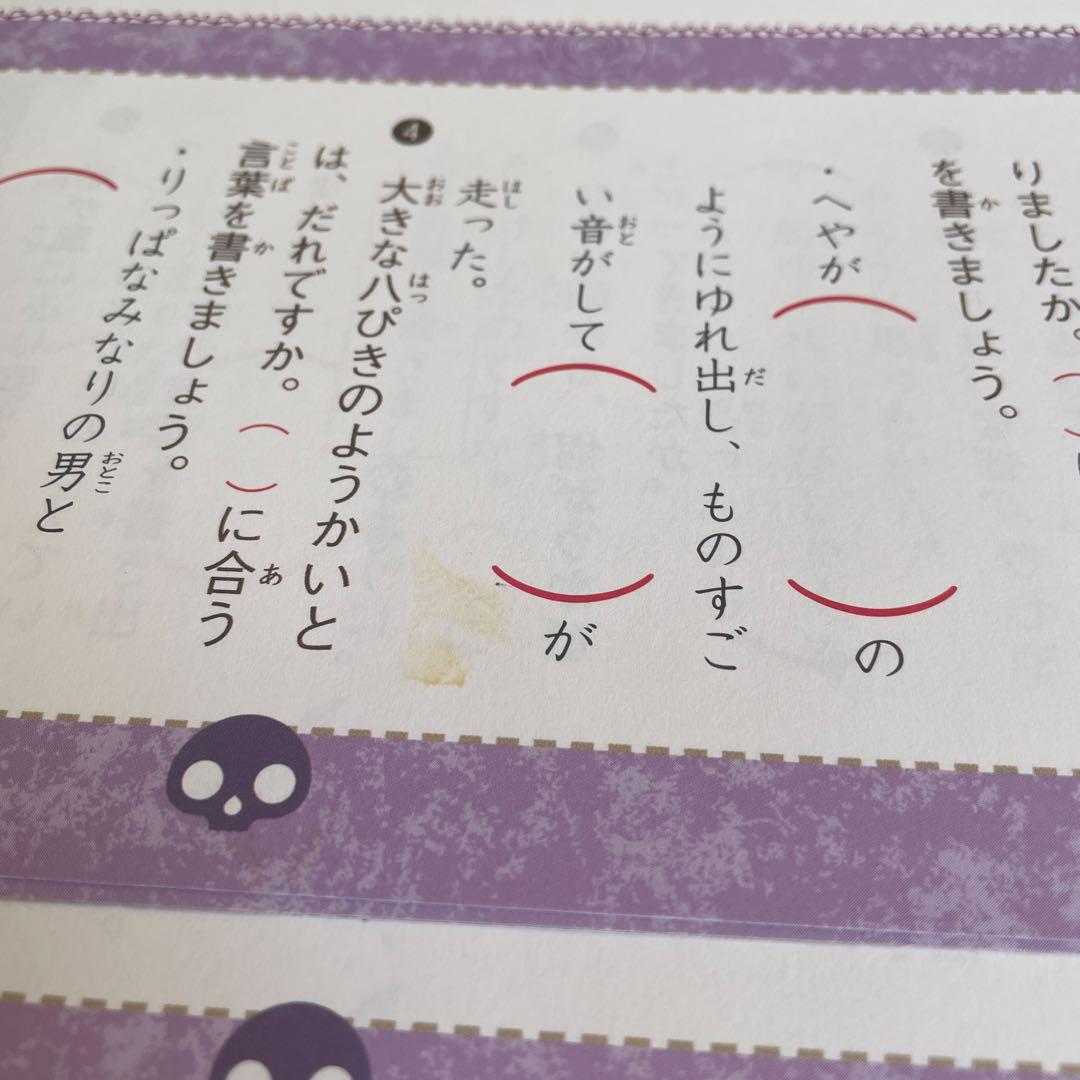 りましたか。（
を書きましょう。
・へやが（　　）の
ようにゆれ出し、ものすご
い音がして（　　）が
走った。
❹ 大きな八ぴきのようかいと
は、だれですか。（　）に合う
言葉を書きましょう。
・りっぱなみなりの男と
（